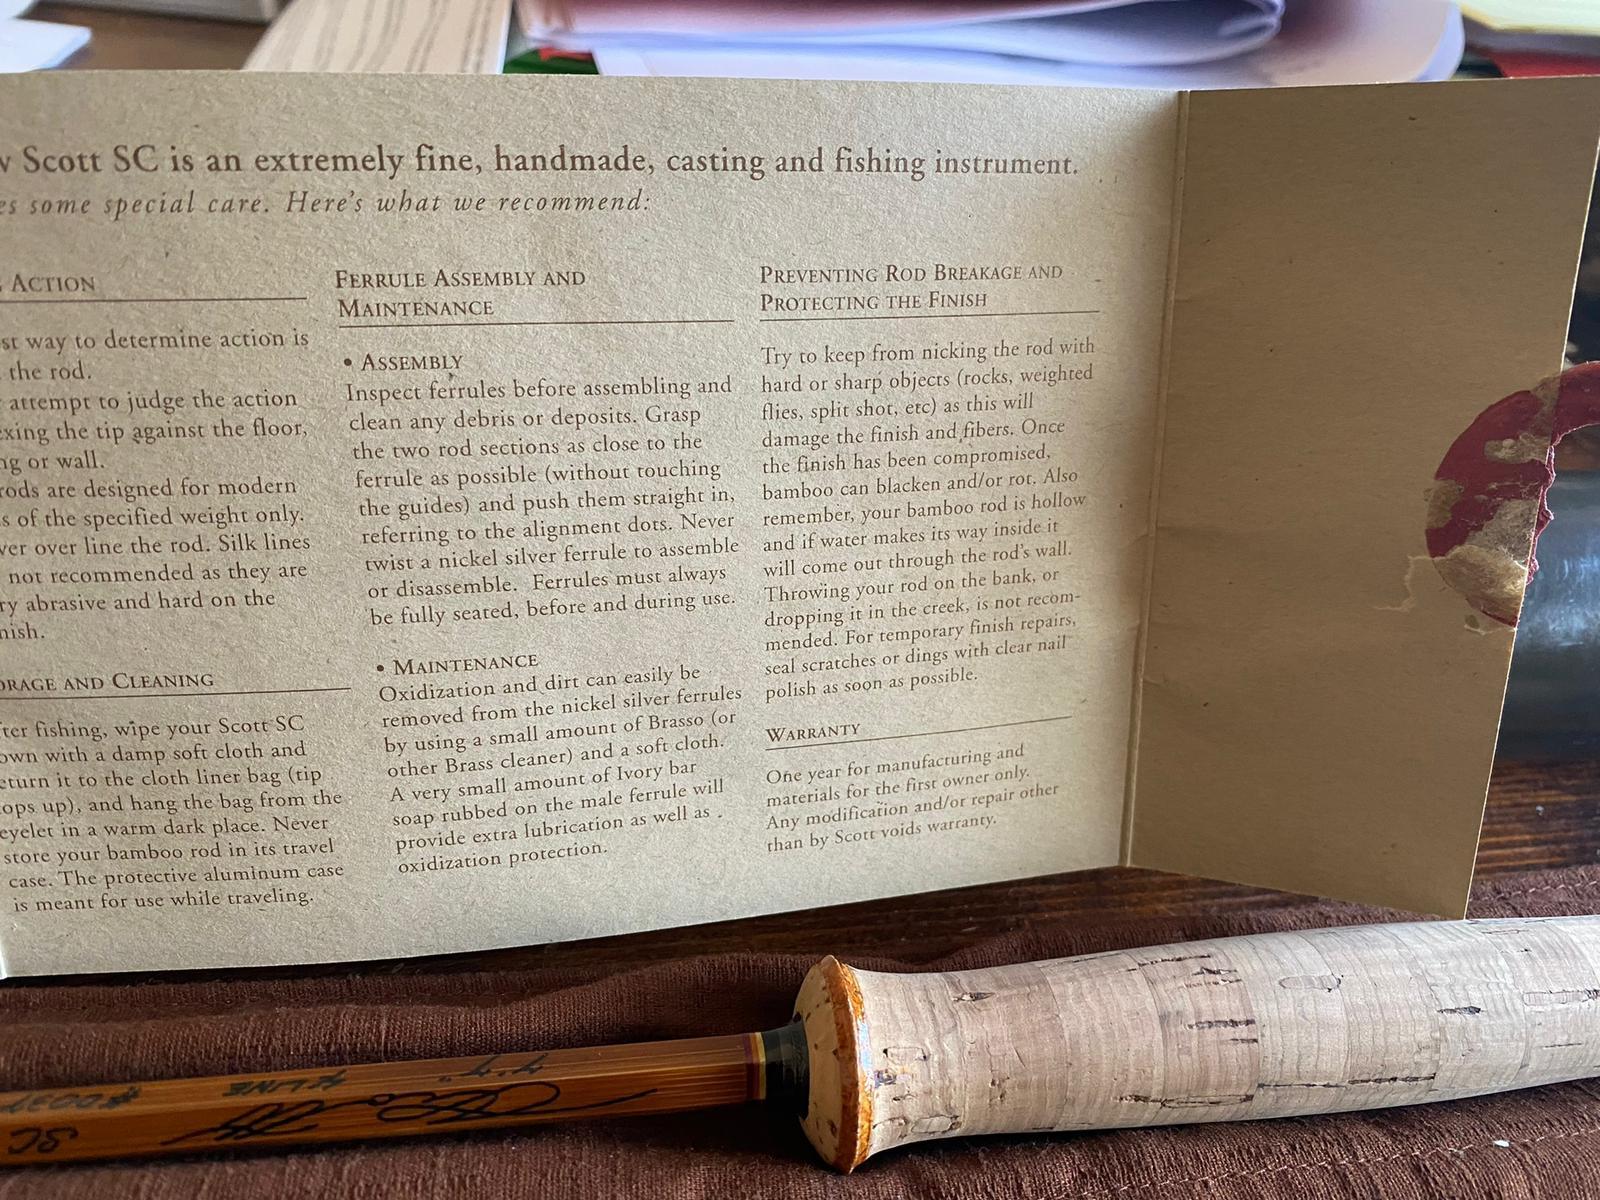 Scott SC is an extremely fine, handmade, casting and fishing instrument.
some special care. Here's what we recommend:
ACTION
way to determine action is
the rod.
attempt to judge the action
the tip against the floor,
or wall.
rods are designed for modern
of the specified weight only.
over line the rod. Silk lines
not recommended as they are
abrasive and hard on the
STORAGE AND CLEANING
After fishing, wipe your Scott SC
down with a damp soft cloth and
return it to the cloth liner bag (tip
tops up), and hang the bag from the
eyelet in a warm dark place. Never
store your bamboo rod in its travel
case. The protective aluminum case
is meant for use while traveling.
FERRULE ASSEMBLY AND
MAINTENANCE
• ASSEMBLY
Inspect ferrules before assembling and
clean any debris or deposits. Grasp
the two rod sections as close to the
ferrule as possible (without touching
the guides) and push them straight in,
referring to the alignment dots. Never
twist a nickel silver ferrule to assemble
or disassemble. Ferrules must always
be fully seated, before and during use.
• MAINTENANCE
Oxidization and dirt can easily be
removed from the nickel silver ferrules
by using a small amount of Brasso (or
other Brass cleaner) and a soft cloth.
A very small amount of Ivory bar
soap rubbed on the male ferrule will
provide extra lubrication as well as .
oxidization protection.
PREVENTING ROD BREAKAGE AND
PROTECTING THE FINISH
Try to keep from nicking the rod with
hard or sharp objects (rocks, weighted
flies, split shot, etc) as this will
damage the finish and fibers. Once
the finish has been compromised,
bamboo can blacken and/or rot. Also
remember, your bamboo rod is hollow
and if water makes its way inside it
will come out through the rod's wall.
Throwing your rod on the bank, or
dropping it in the creek, is not recom-
mended. For temporary finish repairs,
seal scratches or dings with clear nail
polish as soon as possible.
WARRANTY
One year for manufacturing and
materials for the first owner only.
Any modification and/or repair other
than by Scott voids warranty.
LINE
SC